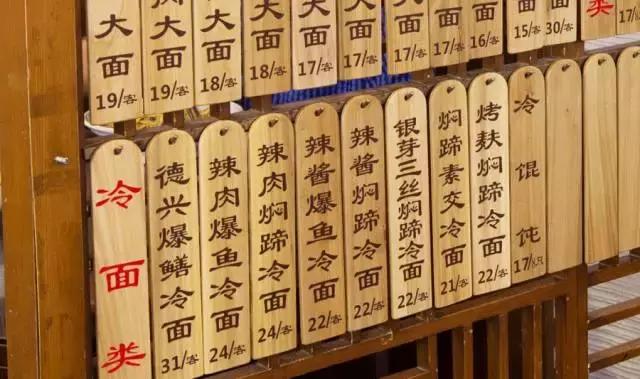 大面 19/客
大面 19/客
大面 18/客
大面 18/客
大面 17/客
大面 17/客
大面 17/客
大面 17/客
面 16/客
15/客
30/客
类
17/
冷面类
德兴爆鳝冷面 31/客
辣肉爆鱼冷面 24/客
辣肉焖蹄冷面 24/客
辣酱爆鱼冷面 22/客
辣酱焖蹄冷面 22/客
银芽三丝焖蹄冷面 22/客
焖蹄素交冷面 21/客
烤麸焖蹄冷面 22/客
冷馄饨 17/8只